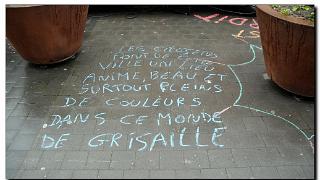 DIT
EST
LES CITOYENS
FONT DE
VILLE UN LIEU
ANIME, BEAU ET
SURTOUT PLEINS
DE COULEURS
DANS CE MONDE
DE GRISAILLE